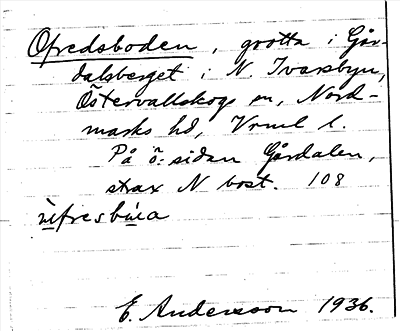 Ofredsboden, grotta i Går-
dalsberget i N. Ivarsbyn,
Östervallskogs sn, Nord-
marks hd, Vrml l.
På ö. sidan Gårdalen,
strax N bost. 108
ùfresbùa
E. Andersson 1936.